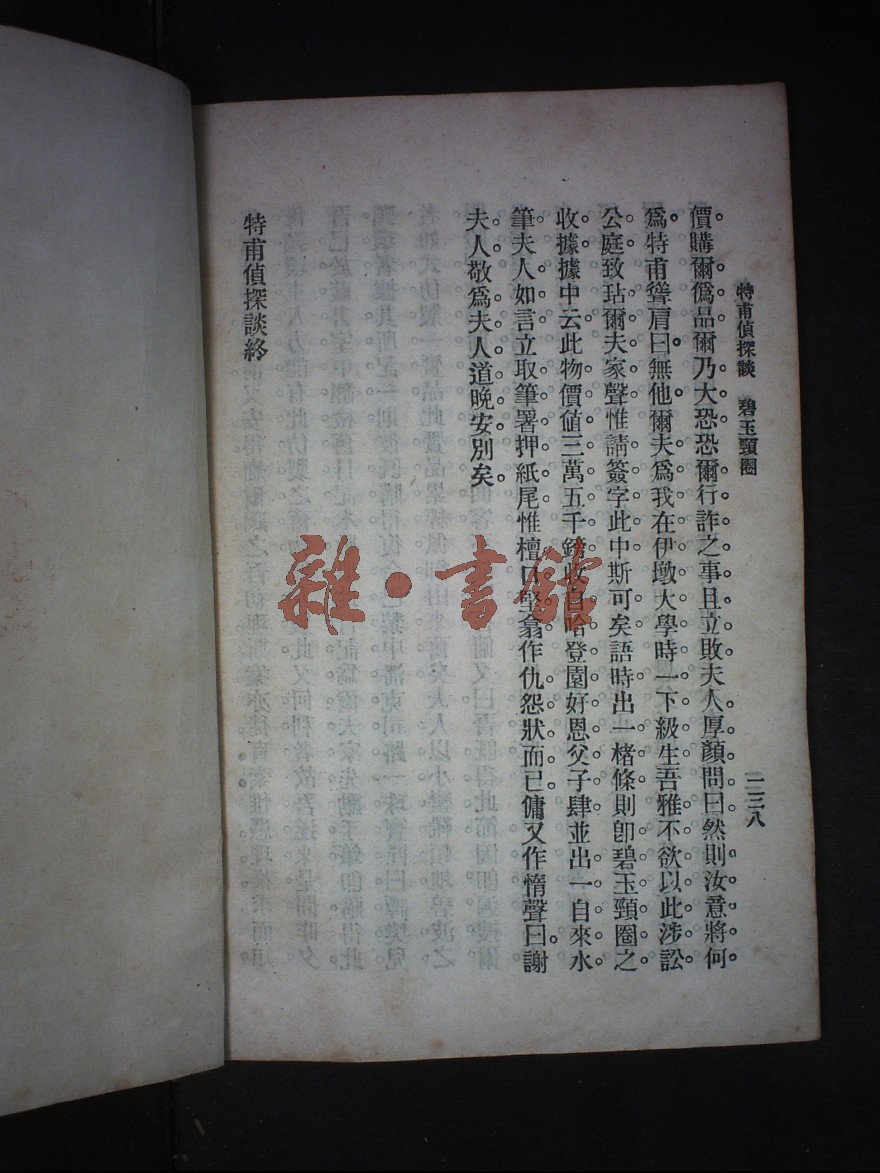 特甫偵探談　碧玉頸圈
二三八
價購爾僞品爾乃大恐恐爾行詐之事且立敗夫人厚顏問曰然則汝意將何
爲特甫聳肩曰無他爾夫爲我在伊墩大學時一下級生吾雅不欲以此涉訟
公庭致玷爾夫家聲惟請簽字此中斯可矣語時出一楮條則卽碧玉頸圈之
收據據中云此物價値三萬五千鎊收自哈登園好恩父子肆並出一自來水
筆夫人如言立取筆署押紙尾惟檀口堅翕作仇怨狀而已傭又作惰聲曰謝
夫人敬爲夫人道晚安別矣
特甫偵探談終
雜·書館